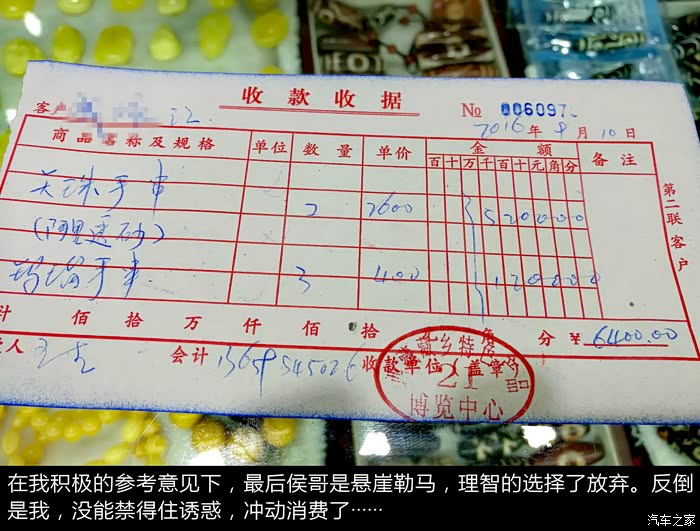 收款收据
№ 006097
客户 江
2016年8月10日
商品名称及规格 单位 数量 单价 金额 备注
百十万千百十元角分
天珠手串 2 2600 520000
(阿里透砂)
玛瑙手串 3 400 120000
计 佰 拾 万 仟 佰 拾 角 分 ¥ 6400.00
人 会计 收款单位(盖章)
21
博览中心
第二联客户
在我积极的参考意见下，最后侯哥是悬崖勒马，理智的选择了放弃。反倒
是我，没能禁得住诱惑，冲动消费了……
汽车之家